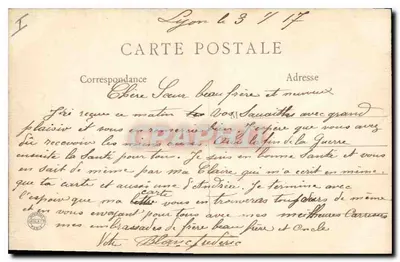 Lyon le 3 1 17
CARTE POSTALE
Correspondance
Adresse
Chere Sœur beau frère et neuveux
J'ai reçue ce matin vos Souaittes avec grand
plaisir et vous en remercie J'espère que vous avez
dû recevoir les la fin de la Guerre
ensuite la Santé pour tous. Je suis en bonne Santé et vous
en sait de même par ma Claire qui m'a ecrit en même
que ta carte et aussi une Je termine avec
l'espoir que ma carte vous en trouveras toujours de même
et en vous envoyant pour tous avec mes meilheures Carresses
mes embrassades de frère beau frère et Oncle
Votre